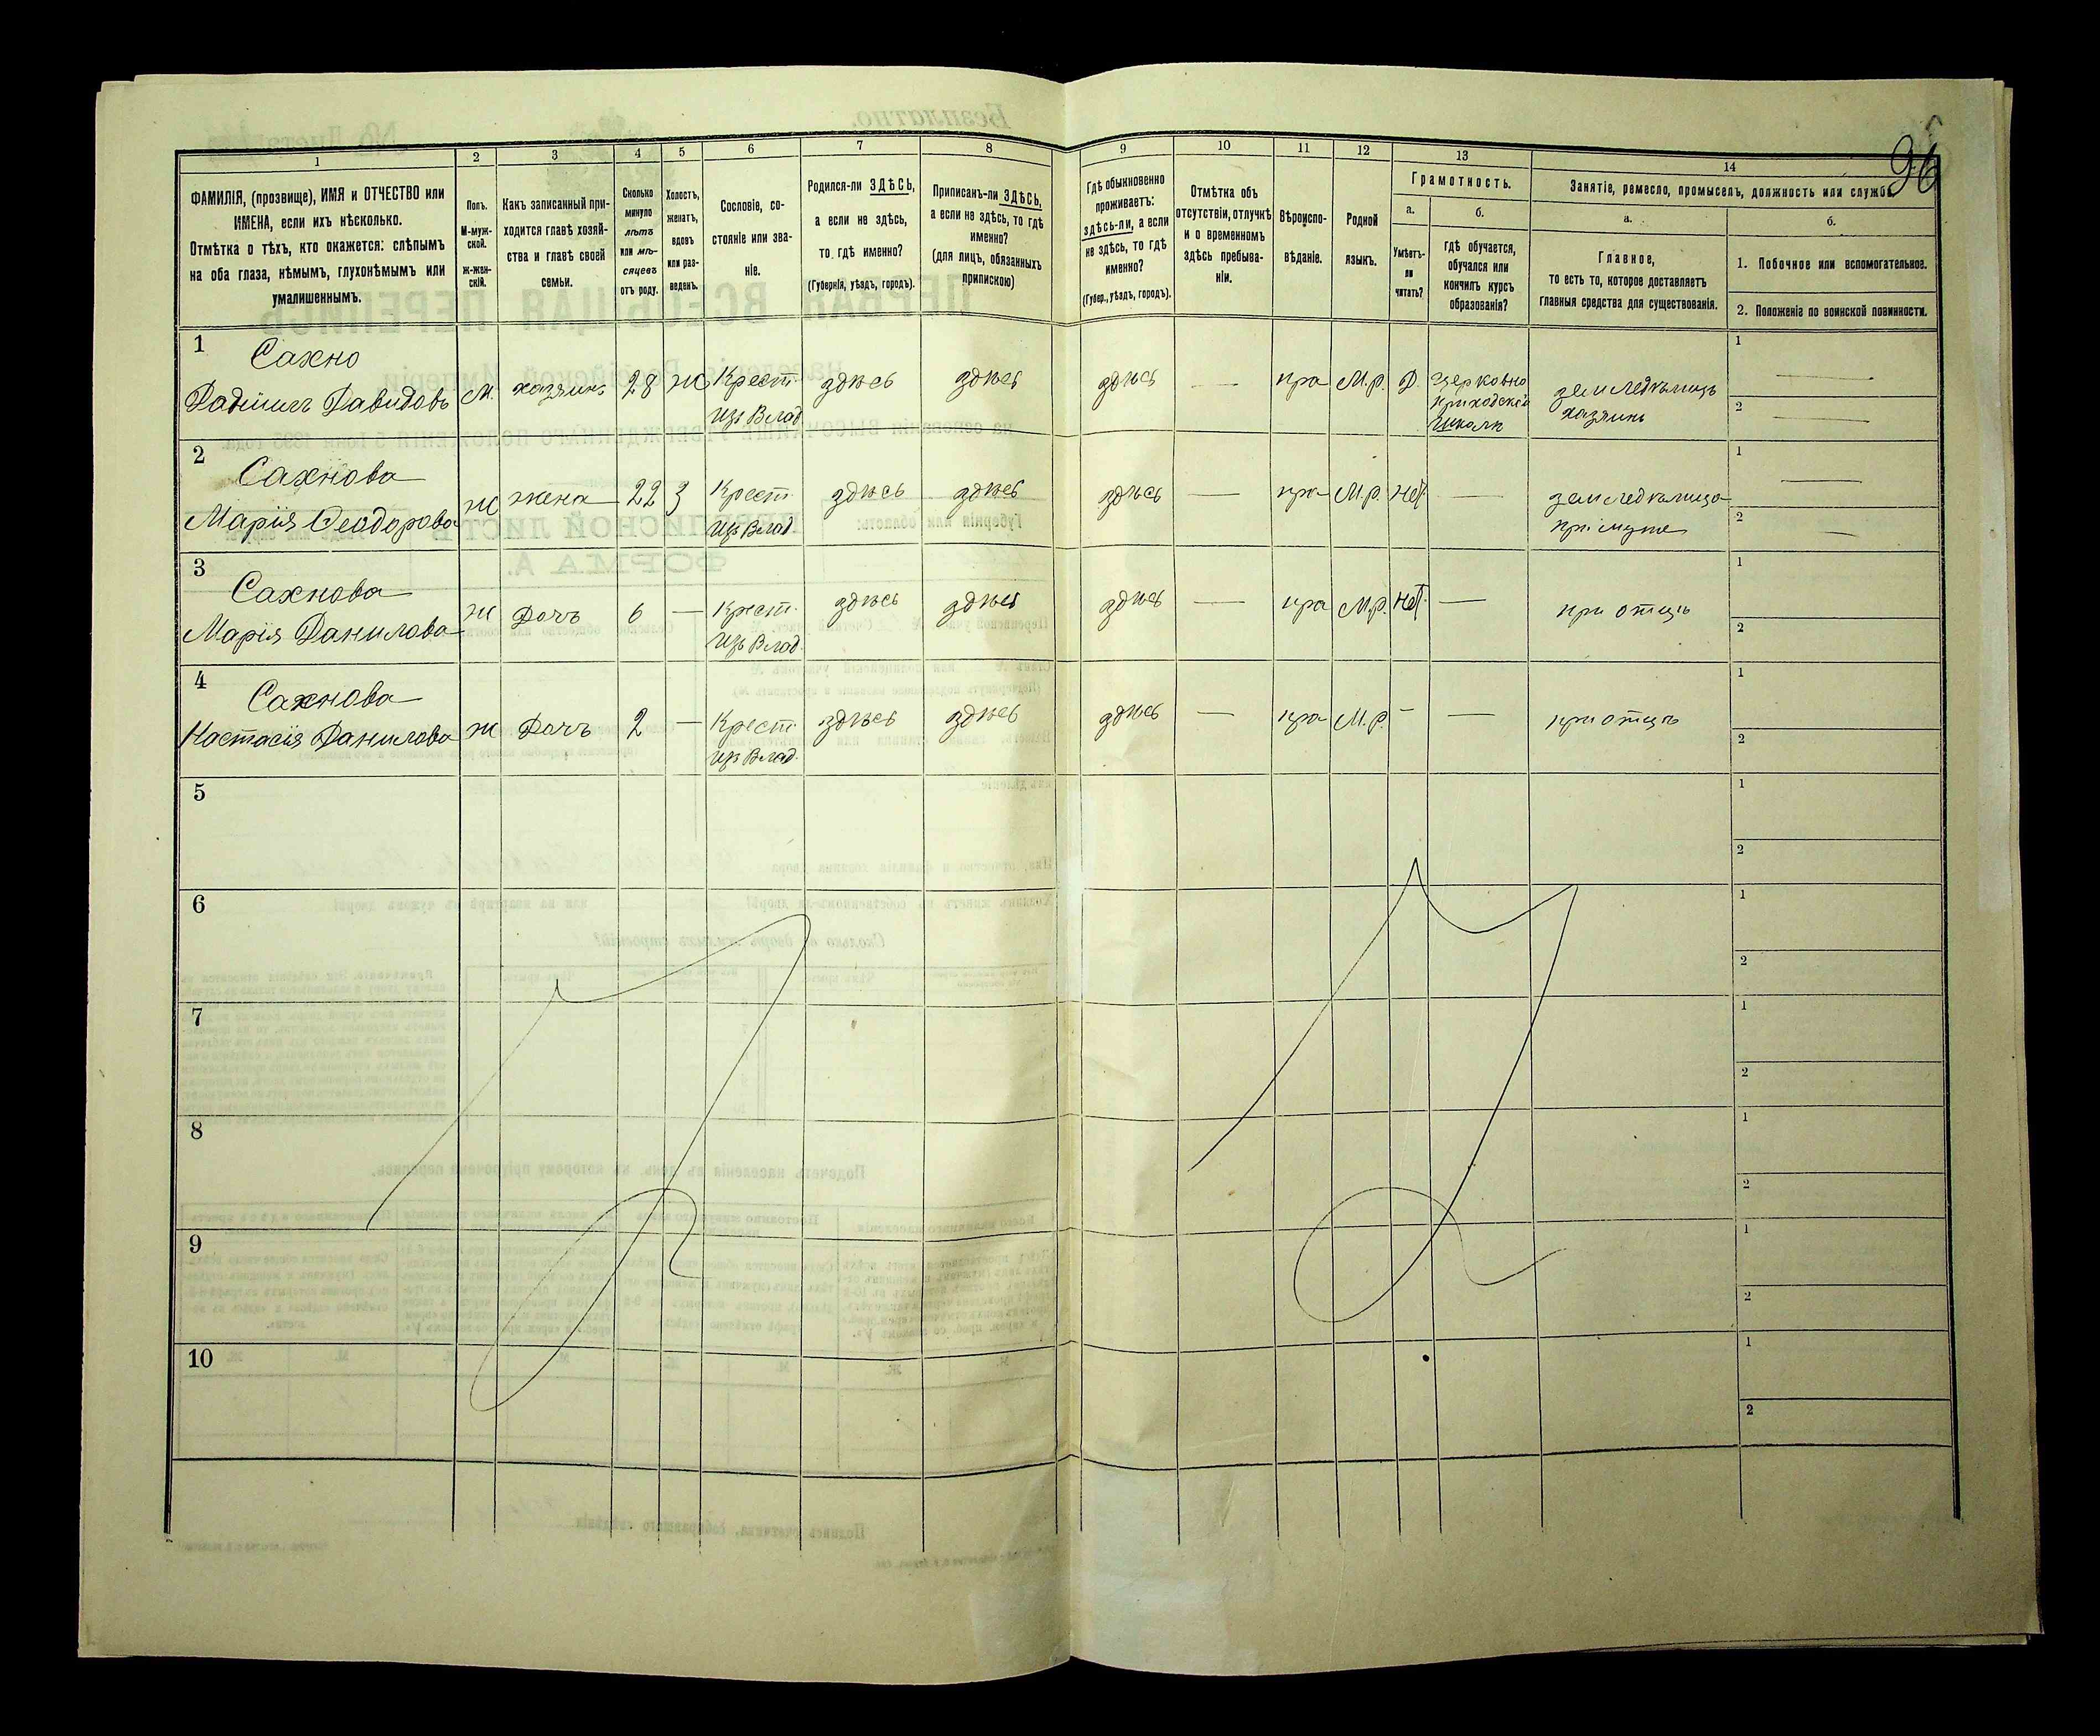 96
1 2 3 4 5 6 7 8 9 10 11 12 13 14
ФАМИЛІЯ, (прозвище), ИМЯ и ОТЧЕСТВО или
ИМЕНА, если ихъ нѣсколько.
Отмѣтка о тѣхъ, кто окажется: слѣпымъ
на оба глаза, нѣмымъ, глухонѣмымъ или
умалишеннымъ.
Полъ.
М-муж-
ской.
ж-жен-
скій.
Какъ записанный при-
ходится главѣ хозяй-
ства и главѣ своей
семьи.
Сколько
минуло
лѣтъ
или мѣ-
сяцевъ
отъ роду.
Холостъ,
женатъ,
вдовъ
или раз-
веденъ.
Сословіе, со-
стояніе или зва-
ніе.
Родился-ли ЗДѢСЬ,
а если не здѣсь,
то гдѣ именно?
(Губернія, уѣздъ, городъ).
Приписанъ-ли ЗДѢСЬ,
а если не здѣсь, то гдѣ
именно?
(для лицъ, обязанныхъ
припискою)
Гдѣ обыкновенно
проживаетъ:
здѣсь-ли, а если
не здѣсь, то гдѣ
именно?
(Губер., уѣздъ, городъ).
Отмѣтка объ
отсутствіи, отлучкѣ
и о временномъ
здѣсь пребыва-
ніи.
Вѣроиспо-
вѣданіе.
Родной
языкъ.
Грамотность.
а.
Умѣетъ-
ли
читать?
б.
гдѣ обучается,
обучался или
кончилъ курсъ
образованія?
Занятіе, ремесло, промыселъ, должность или служба.
а.
Главное,
то есть то, которое доставляетъ
главныя средства для существованія.
б.
1. Побочное или вспомогательное.
2. Положеніе по воинской повинности.
1 Сахно
Даніилъ Давидовъ М. хазяинъ 28 Ж Крест. здѣсь здѣсь здѣсь — пра М.р. Д. Церковно земледѣлецъ 1 —
Изъ Влад. приходской хазяинъ 2 —
школѣ
2 Сахнова
Марія Ѳеодорова Ж жена 22 З Крест. здѣсь здѣсь здѣсь — пра М.р. нет. — земледѣлица 1 —
Изъ Влад. при мужѣ 2 —
3 Сахнова
Марія Данилова Ж Дочъ 6 — Крест. здѣсь здѣсь здѣсь — пра М.р. нет. — при отцѣ 1
Изъ Влад. 2
4 Сахнова
Настасія Данилова Ж Дочъ 2 — Крест. здѣсь здѣсь здѣсь — пра М.р. — — при отцѣ 1
Изъ Влад. 2
5 1
2
6 1
2
7 1
2
8 1
2
9 1
2
10 1
2